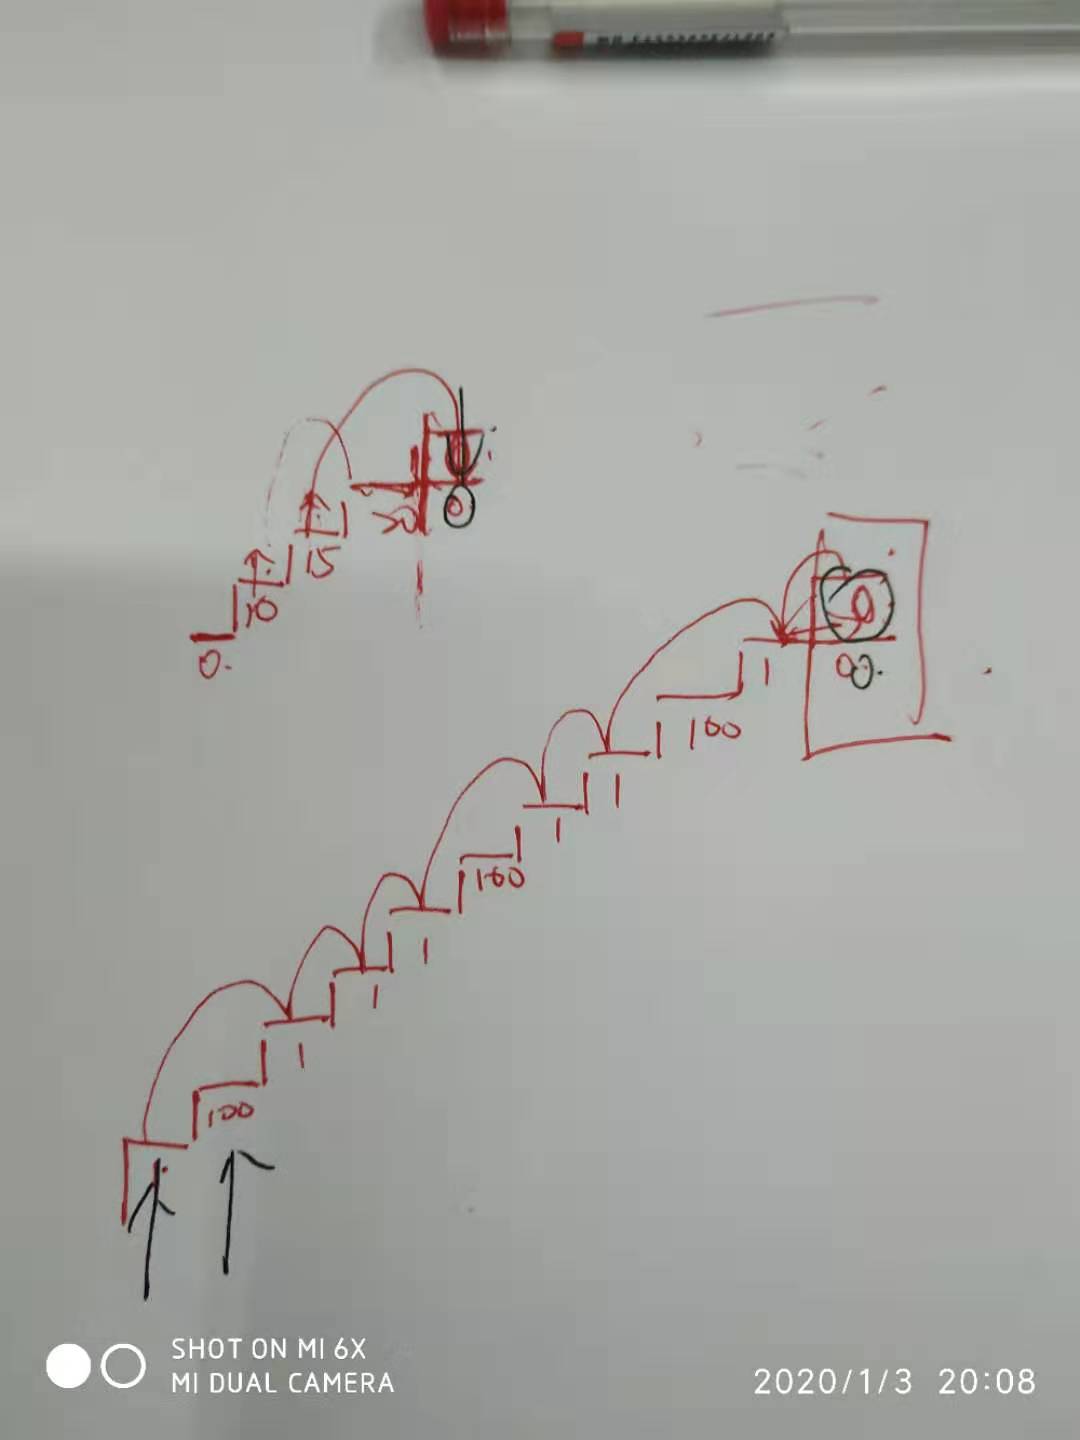 0
30
15
10
0.
0
1
00.
100
1
1
100
1
1
1
100
SHOT ON MI 6X
MI DUAL CAMERA
2020/1/3 20:08